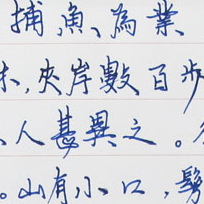 捕魚為業
林,夾岸數百步
人甚異之。
。山有小口,髣